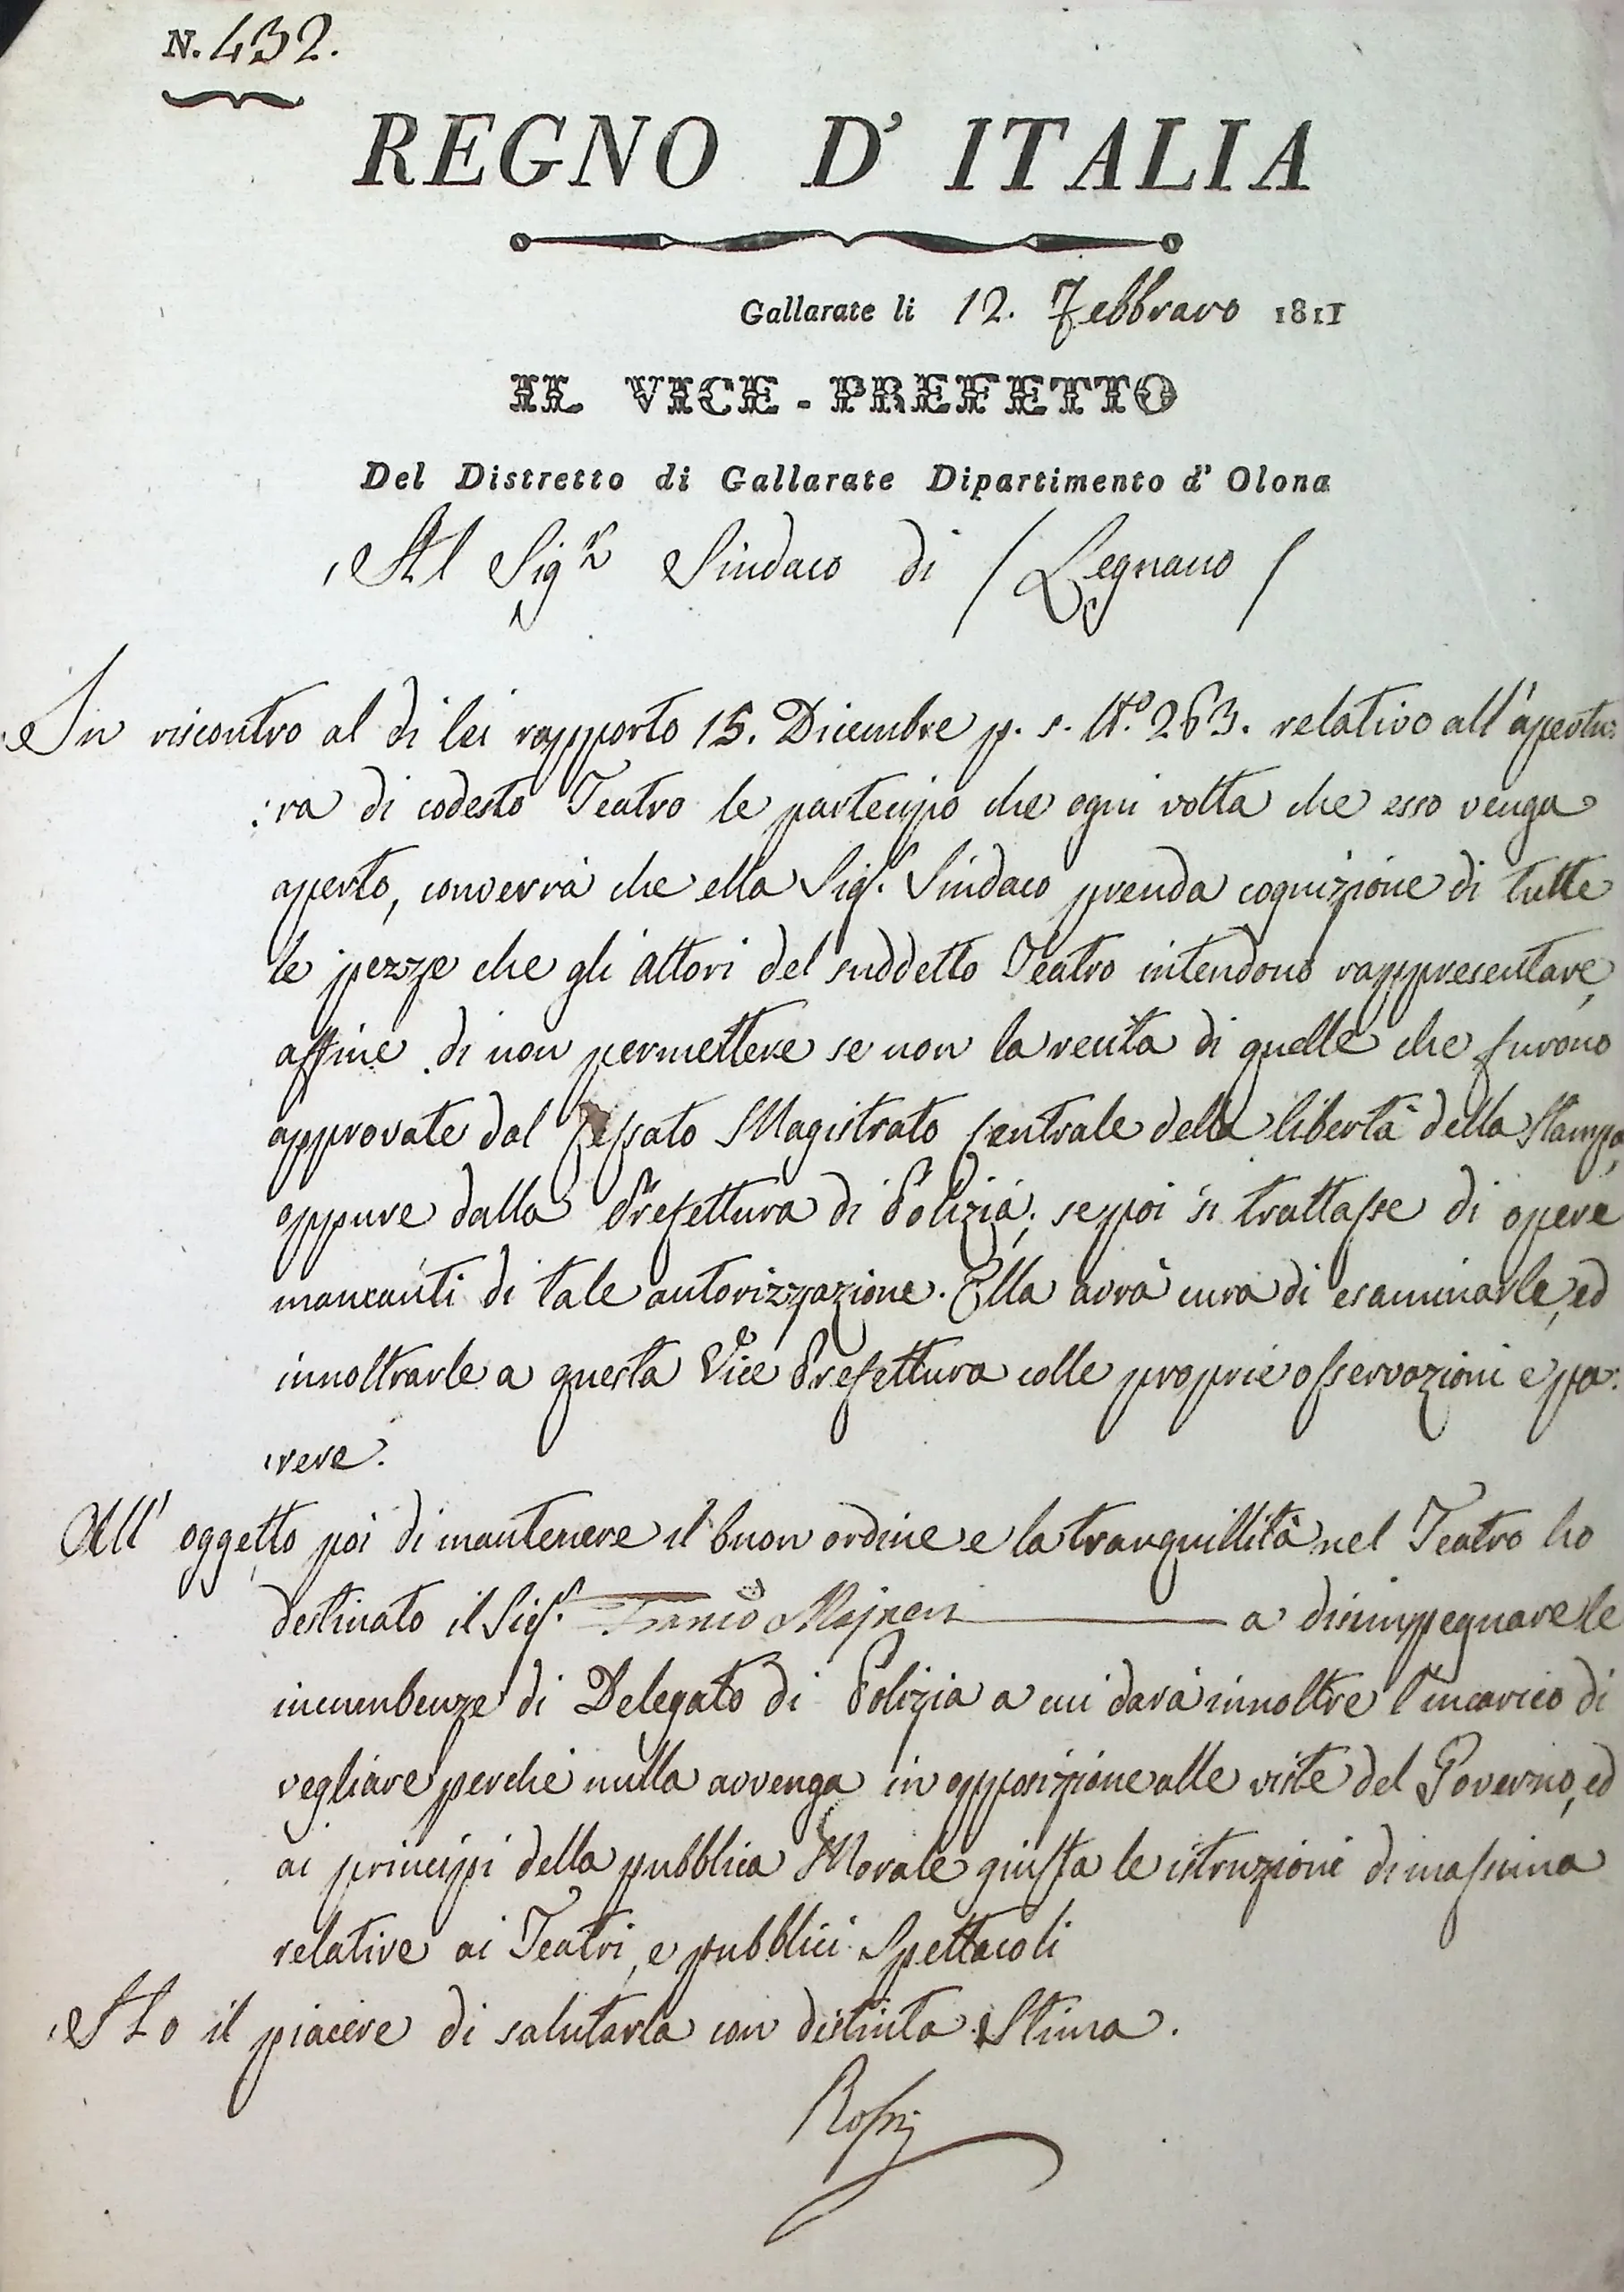 N. 432.
REGNO D' ITALIA
Gallarate li 12. Febbraro 1811
IL VICE-PREFETTO
Del Distretto di Gallarate Dipartimento d' Olona
Al Sigr Sindaco di / Legnano /
In riscontro al di lei rapporto 15. Dicembre p. s. N.o 263. relativo all'apertu:
:ra di codesto Teatro le partecipo che ogni volta che esso venga
aperto, converrà che ella Sigr. Sindaco prenda cognizione di tutte
le pezze che gli Attori del suddetto Teatro intendono rappresentare,
affine di non permettere se non la recita di quelle che furono
approvate dal Cessato Magistrato Centrale della libertà della Stampa,
oppure dalla Prefettura di Polizia; se poi si trattasse di opere
mancanti di tale autorizzazione. Ella avrà cura di esaminarle, ed
innoltrarle a questa Vice Prefettura colle proprie osservazioni e pa:
:rere.
All' oggetto poi di mantenere il buon ordine e la tranquillità nel Teatro ho
destinato il Sigr. a disimpegnare le
incumbenze di Delegato di Polizia a cui darà innoltre l'incarico di
vegliare perchè nulla avvenga in opposizione alle viste del Governo, ed
ai principi della pubblica Morale giusta le istruzioni di massima
relative ai Teatri, e pubblici Spettacoli
Ho il piacere di salutarla con distinta Stima.
Rossi